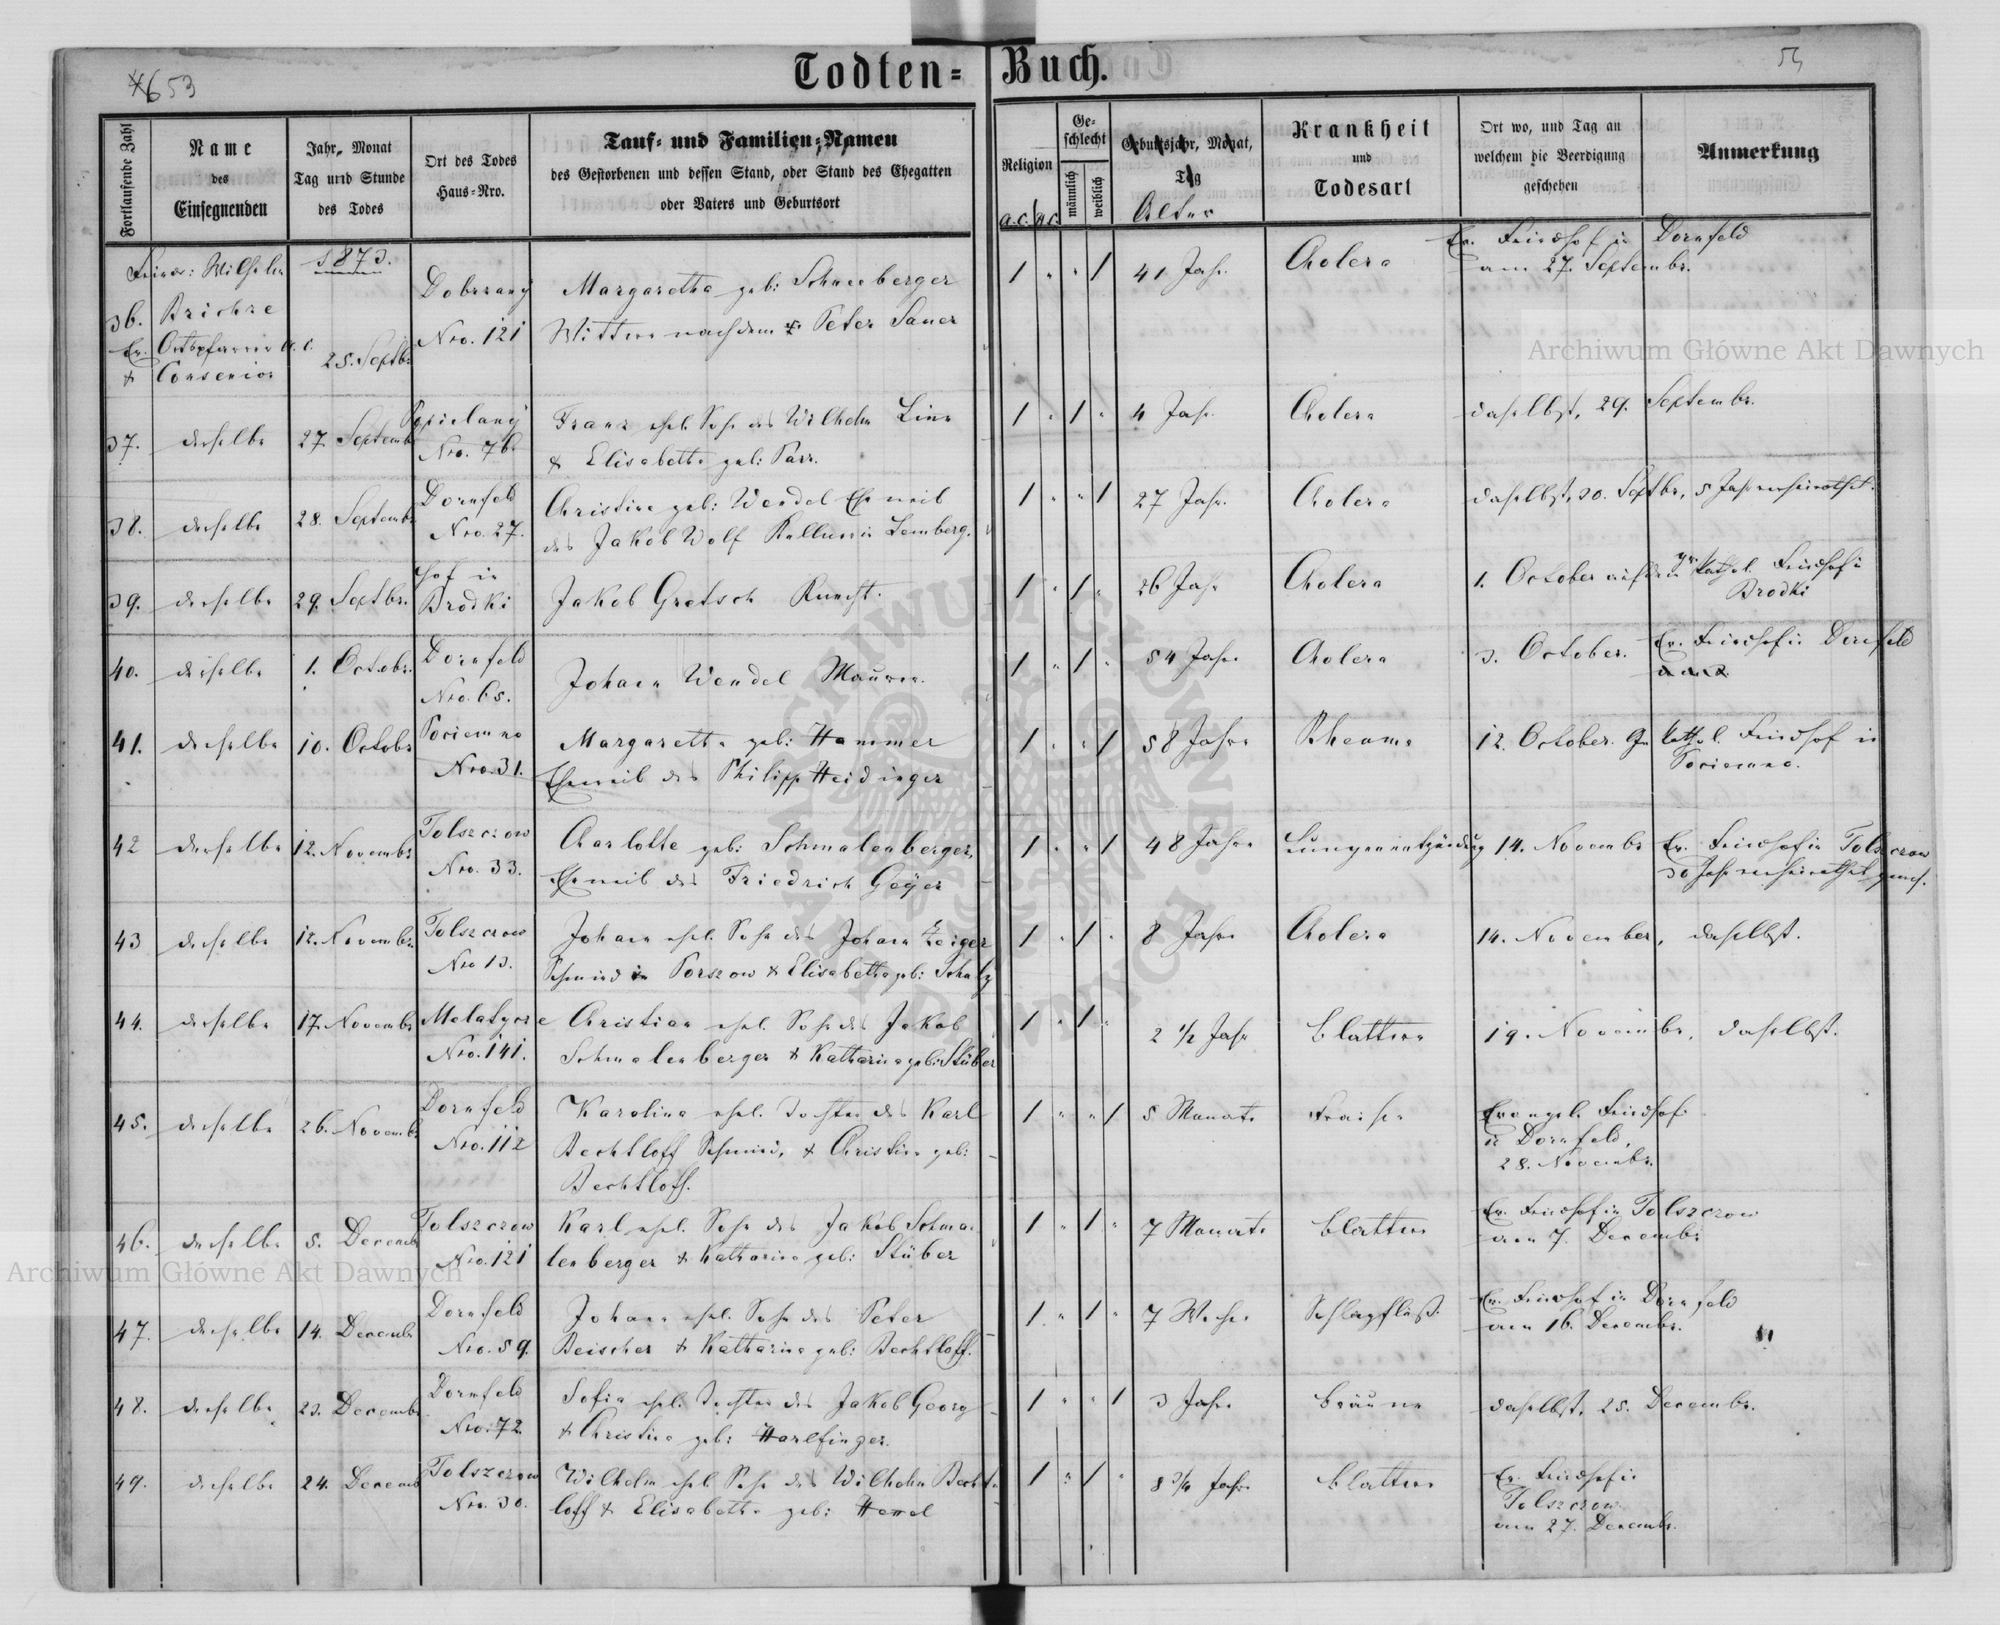 *653
Todten=Buch.
55
Fortlaufende Zahl
Name
des
Einsegnenden
Jahr, Monat
Tag und Stunde
des Todes
Ort des Todes
Haus=Nro.
Tauf= und Familien=Namen
des Gestorbenen und dessen Stand, oder Stand des Ehegatten
oder Vaters und Geburtsort
Religion
a.c. h.c.
Ge-
schlecht
männlich
weiblich
Geburtsjahr, Monat,
Tag
Alter
Krankheit
und
Todesart
Ort wo, und Tag an
welchem die Beerdigung
geschehen
Anmerkung
36. Ferd: Wilhelm 1873. Dobrzany Margaretha geb: Schneeberger 1 " " 1 41 Jahr Cholera Ev. Friedhof in Dornfeld
Ev. Ortspfarrer A. C. 25. Septbr Nro. 121 Wittwe nach dem Peter Sauer am 27. Septembr.
& Consenior
37. derselbe 27. Septemb Popielany Franz ehel. Sohn des Wilhelm Linn 1 " 1 " 4 Jahr Cholera daselbst, 29. Septembr.
Nro. 76. & Elisabetha geb: Parr.
38. derselbe 28. Septemb Dornfeld Christine geb: Wendel Eheweib 1 " " 1 27 Jahr. Cholera daselbst, 30. Septbr, 5 Jahr verheirathet.
Nro. 27. des Jakob Wolf Lemberg.
39. derselbe 29. Septbr. Hof in Jakob Gretsch Knecht. 1 " 1 " 26 Jahr Cholera 1. October auf dem gr. kathol. Friedhof in
Brodki Brodki
40. derselbe 1. Octobr. Dornfeld Johann Wendel Maurer. 1 " 1 " 54 Jahre Cholera 3. October. Ev. Friedhof in Dornfeld
Nro. 65.
41. derselbe 10. Octobr Porienne Margaretha geb: Hammer 1 " " 1 58 Jahre Rheuma 12. October. Gr. kathol. Friedhof in
Nro. 31. Eheweib des Philipp Heidinger
42 derselbe 12. Novembr Tolszczow Charlotte geb: Schmalenberger, 1 " " 1 48 Jahre Lungenentzündung 14. Novembr Ev. Friedhof in Tolszczow
Nro. 33. Eheweib des Friedrich Geÿer 30 Jahr verheirathet gewes.
43 derselbe 12. Novembr. Tolszczow Johann ehel. Sohn des Johann Zeiger 1 " 1 " 8 Jahre Cholera 14. November, daselbst.
Nro 13. Schmied in Porszow & Elisabetha geb: Schatz
44. derselbe 17. Novembr Christian ehel. Sohn des Jakob 1 " 1 " 2 1/2 Jahr Blattern 19. Novembr, daselbst.
Nro. 141. Schmalenberger & Katharina geb: Stüber
45. derselbe 26. Novemb Dornfeld Karolina ehel. Tochter des Karl 1 " " 1 5 Monate Fraisen Evangel. Friedhof
Nro. 112 Bechtloff Schmied, & Christine geb: in Dornfeld,
Bechtloff. 28. Novembr.
46. derselbe 5. Decemb Tolszczow Karl ehel. Sohn des Jakob Schma- 1 " 1 " 7 Monate Blattern Ev. Friedhof in Tolszczow
Nro. 121 lenberger & Katharina geb: Stüber am 7. Decembr
47. derselbe 14. Decembr Dornfeld Johann ehel. Sohn des Peter 1 " 1 " 7 Wochen Schlagfluß. Ev. Friedhof in Dornfeld
Nro. 59. Beischer & Katharina geb: Bechtloff. am 16. Decembr.
48. derselbe 23. Decembr Dornfeld Sofia ehel. Tochter des Jakob Georg 1 " " 1 3 Jahre Bräune daselbst, 25. Decembr.
Nro: 72 & Christine geb: Harlfinger.
49. derselbe 24. Decemb Tolszczow Wilhelm ehel. Sohn des Wilhelm Becht- 1 " 1 " 8 3/4 Jahre Blattern Ev. Friedhof in
Nro. 30. loff & Elisabetha geb: Tolszczow
am 27. Decembr.
Archiwum Główne Akt Dawnych
Archiwum Główne Akt Dawnych
ARCHIWUM GŁÓWNE AKT DAWNYCH